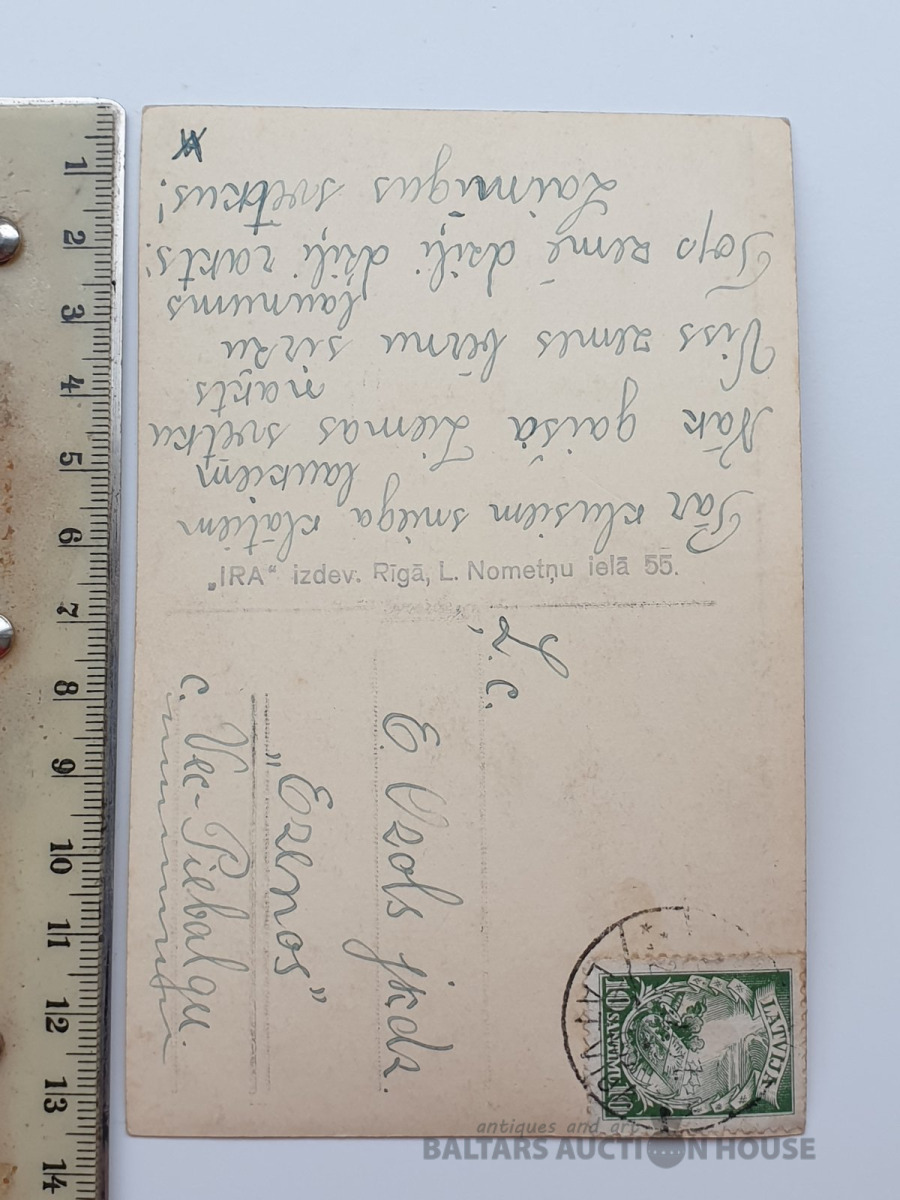 Pār klusiem sniega klātiem
laukiem
Nāk gaišā Ziemas svētku
nakts
Viss zemes bērnu siržu
ļaunums
Top zemē dziļi dziļi rakts.
Laimīgus svētkus!
„IRA“ izdev. Rīgā, L. Nometņu ielā 55.
L. c.
E. Ozols jkdz.
"Ezenos"
c. Vec-Piebalgu.
LATVIJA
10 SANTIMU 10
1
2
3
4
5
6
7
8
9
10
11
12
13
14
antiques and art
BALTARS AUCTION HOUSE